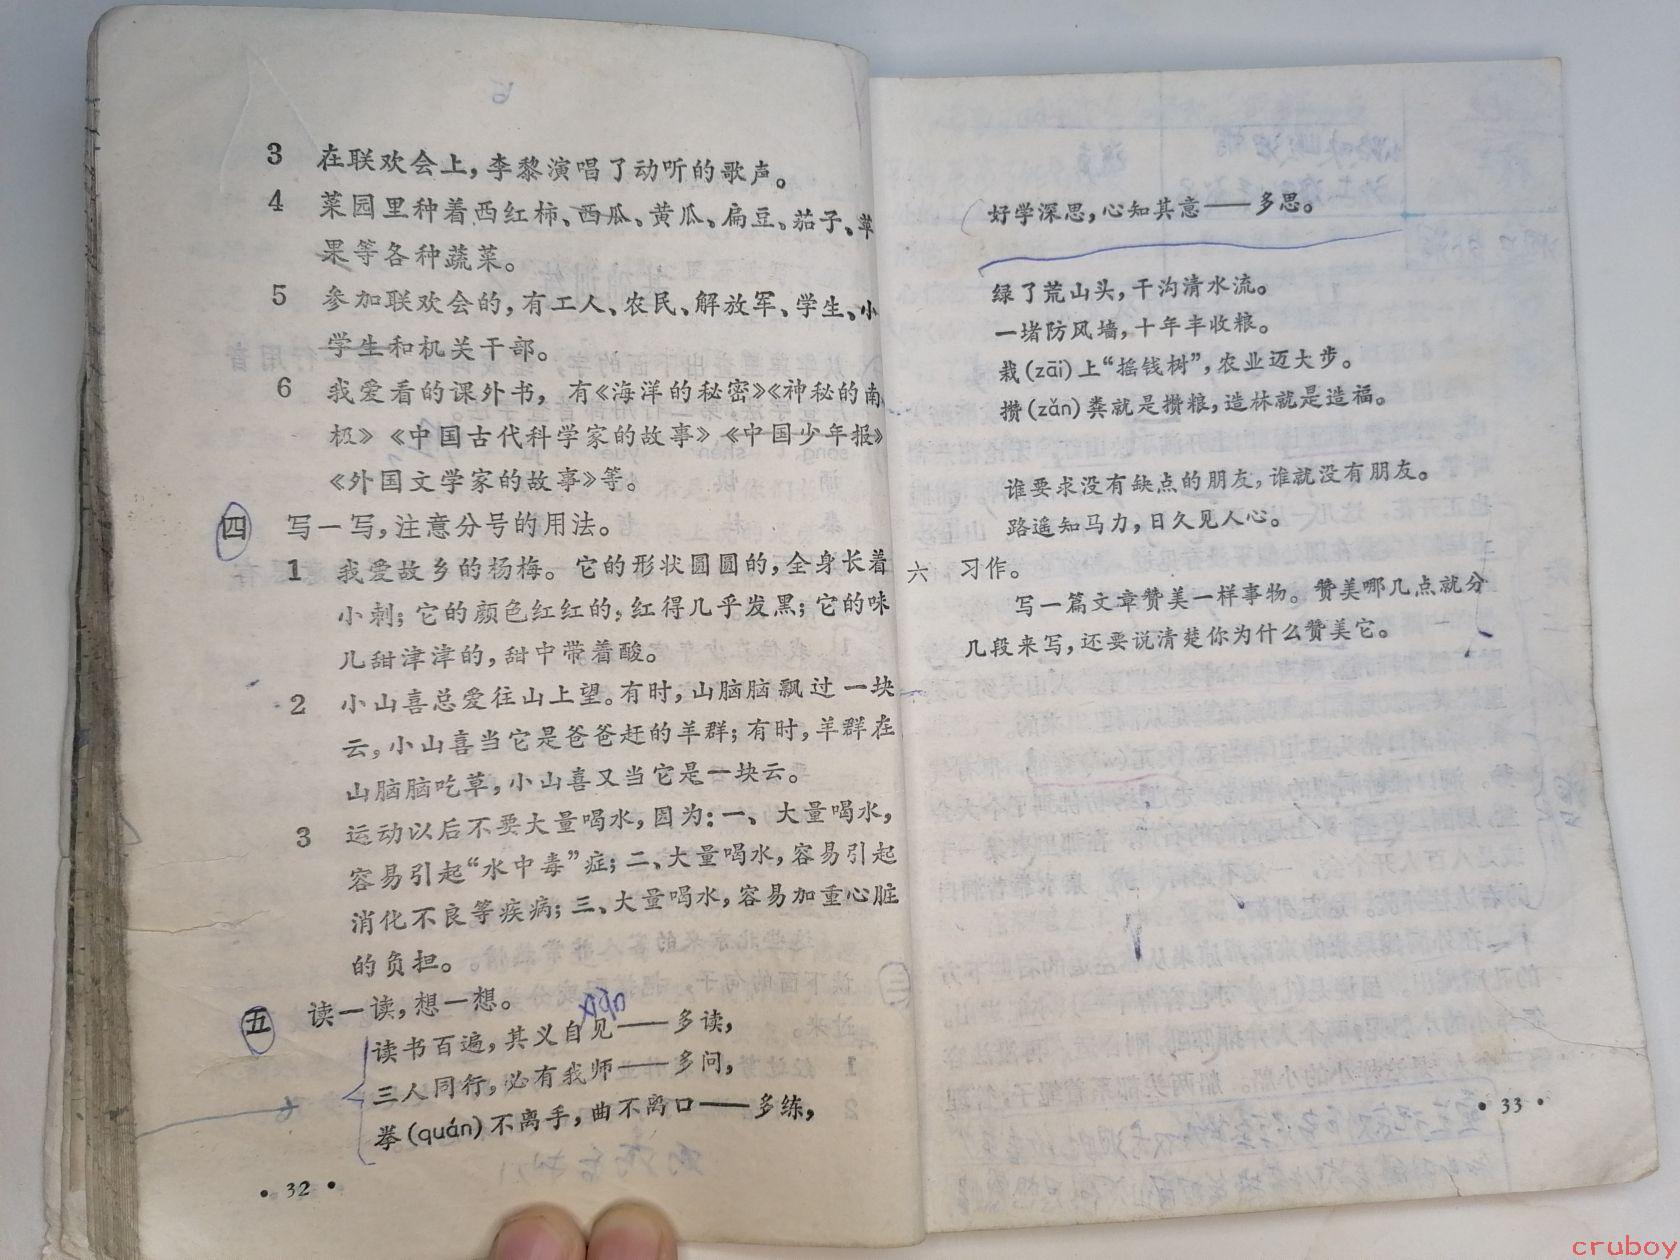 3 在联欢会上，李黎演唱了动听的歌声。
4 菜园里种着西红柿、西瓜、黄瓜、扁豆、茄子、苹
果等各种蔬菜。
5 参加联欢会的，有工人、农民、解放军、学生、小
学生和机关干部。
6 我爱看的课外书，有《海洋的秘密》《神秘的南
极》《中国古代科学家的故事》《中国少年报》
《外国文学家的故事》等。
四 写一写，注意分号的用法。
1 我爱故乡的杨梅。它的形状圆圆的，全身长着
小刺；它的颜色红红的，红得几乎发黑；它的味
儿甜津津的，甜中带着酸。
2 小山喜总爱往山上望。有时，山脑脑飘过一块
云，小山喜当它是爸爸赶的羊群；有时，羊群在
山脑脑吃草，小山喜又当它是一块云。
3 运动以后不要大量喝水，因为：一、大量喝水，
容易引起“水中毒”症；二、大量喝水，容易引起
消化不良等疾病；三、大量喝水，容易加重心脏
的负担。
五 读一读，想一想。
读书百遍，其义自见——多读，
三人同行，必有我师——多问，
拳(quán)不离手，曲不离口——多练，
·32·
好学深思，心知其意——多思。
绿了荒山头，干沟清水流。
一堵防风墙，十年丰收粮。
栽(zāi)上“摇钱树”，农业迈大步。
攒(zǎn)粪就是攒粮，造林就是造福。
谁要求没有缺点的朋友，谁就没有朋友。
路遥知马力，日久见人心。
六 习作。
写一篇文章赞美一样事物。赞美哪几点就分
几段来写，还要说清楚你为什么赞美它。
·33·
cruboy